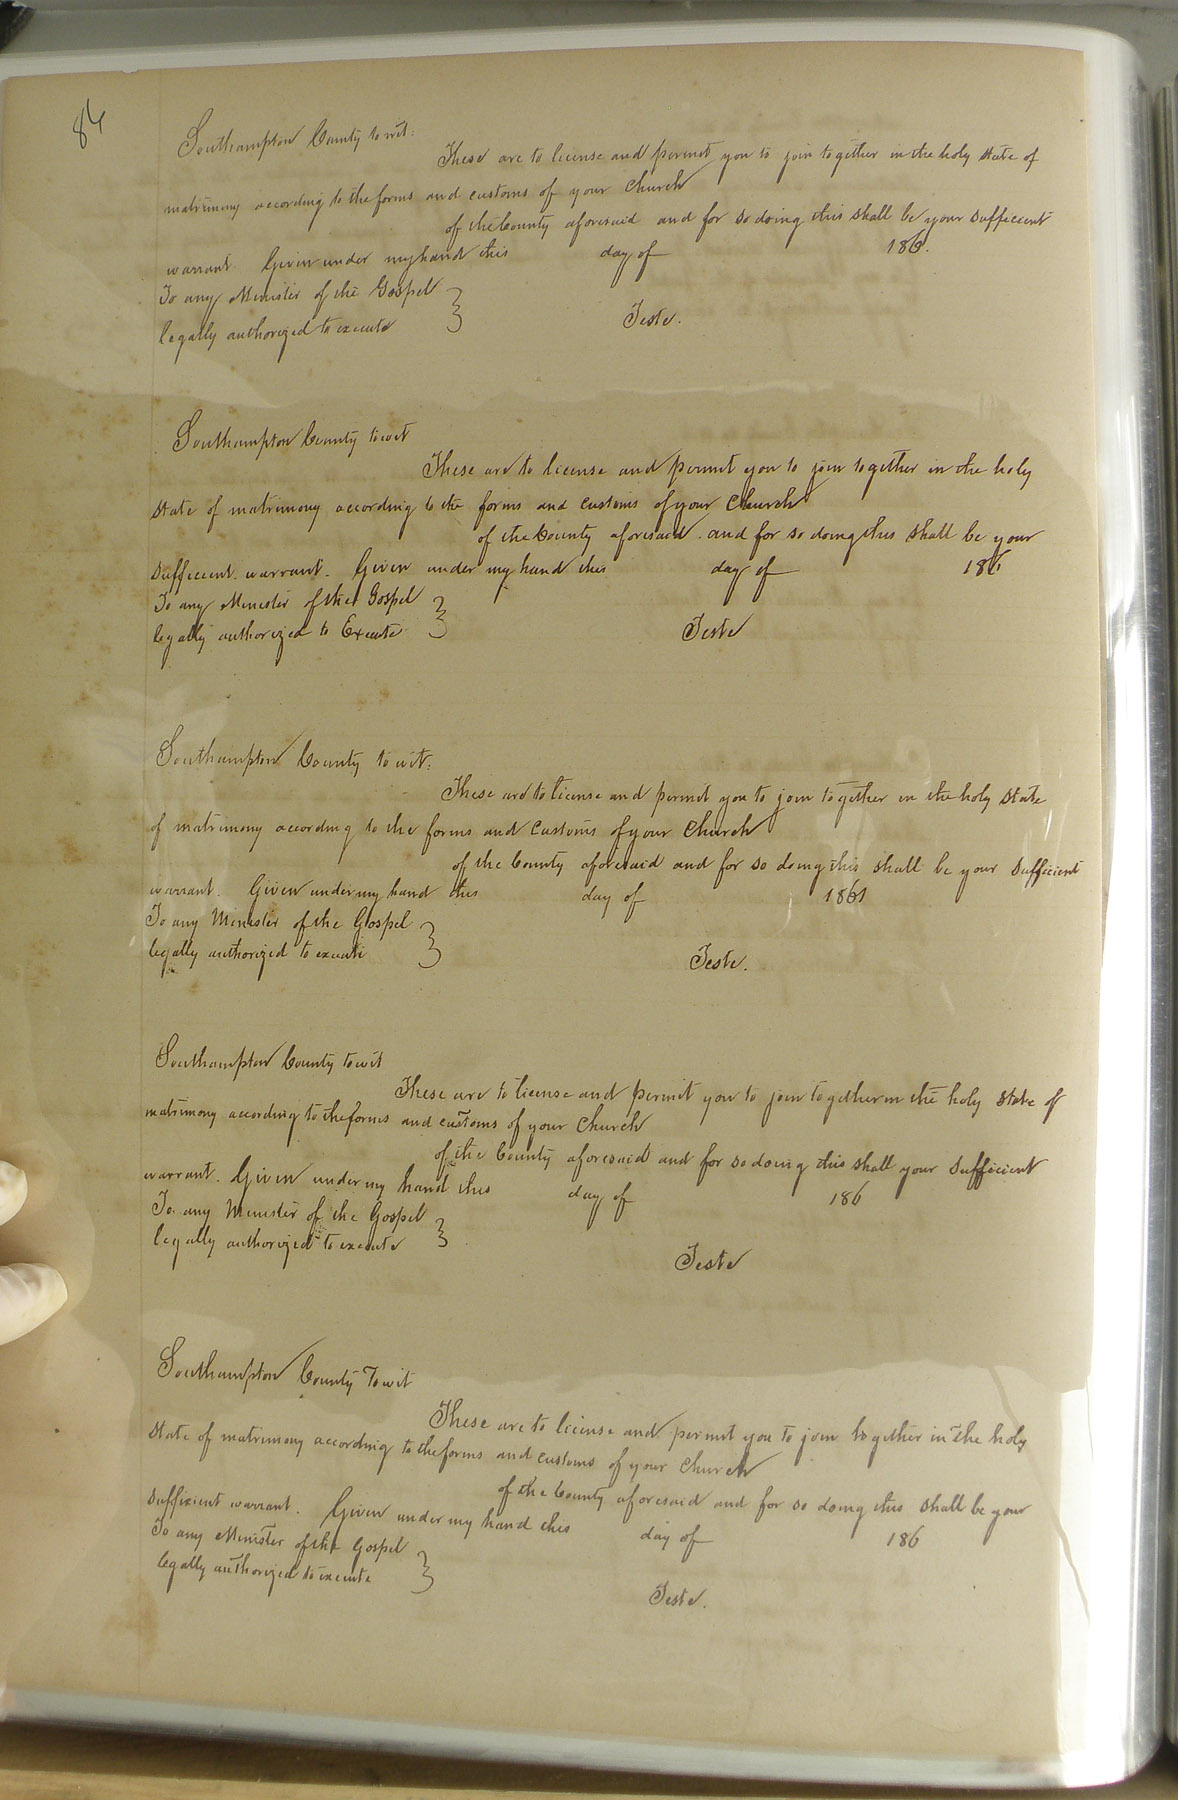 86
Southampton County to wit:
These are to license and permit you to join together in the holy state of
matrimony according to the forms and customs of your Church
of the County aforesaid and for so doing this shall be your sufficient
warrant. Given under my hand this day of 186.
To any Minister of the Gospel
legally authorized to execute } Teste.
Southampton County to wit
These are to license and permit you to join together in the holy
state of matrimony according to the forms and customs of your Church
of the County aforesaid and for so doing this shall be your
sufficient warrant. Given under my hand this day of 186
To any Minister of the Gospel
legally authorized to Execute } Teste
Southampton County to wit:
These are to license and permit you to join together in the holy state
of matrimony according to the forms and customs of your Church
of the County aforesaid and for so doing this shall be your sufficient
warrant. Given under my hand this day of 1861
To any Minister of the Gospel
legally authorized to execute } Teste.
Southampton County to wit
These are to license and permit you to join together in the holy state of
matrimony according to the forms and customs of your Church
of the County aforesaid and for so doing this shall your sufficient
warrant. Given under my hand this day of 186
To any Minister of the Gospel
legally authorized to execute } Teste
Southampton County To wit
These are to license and permit you to join together in the holy
state of matrimony according to the forms and customs of your Church
of the County aforesaid and for so doing this shall be your
sufficient warrant. Given under my hand this day of 186
To any Minister of the Gospel
legally authorized to execute } Teste.